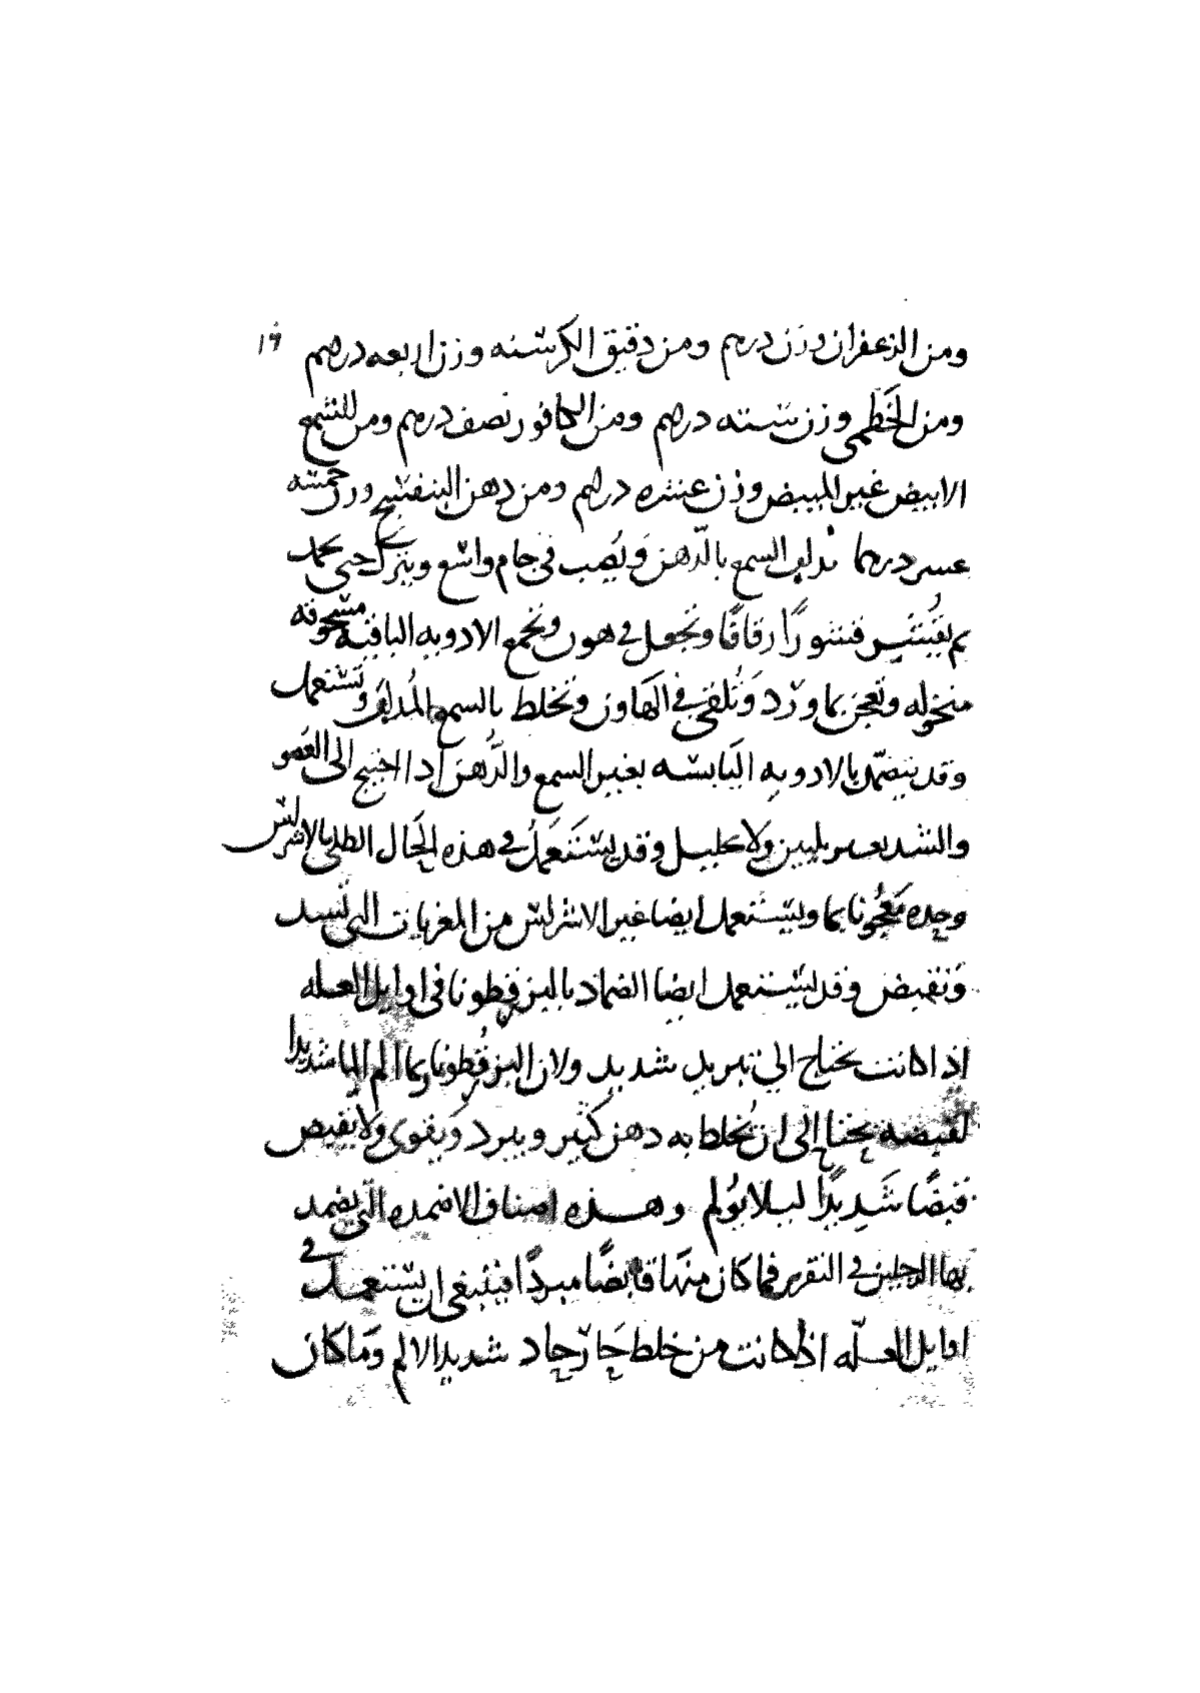 ومن الزعفران وزن درهم ومن دقيق الكرسنه وزن اربعه درهم ١٩
ومن الخَطمى وزن سته درهم ومن الكافور نصف درهم ومن الشمع
الابيض غير المبيض وزن عشره درهم ومن دهن البنفسج وزن خمسه
عسر درهما تداب السمع بالدّهن وَيُصب فى جام واسع ويترك حتى يجمد
ثم يُقَشَّر قشورًا رقاقًا وتجعل في هون وتجمع الادويه الباقيه مسحوقه
منخوله وتعجن بماورد وَتُلقى في الهَاون وتخلط بالسمع المُداب وتستعمل
وقد يتضمّد بالادويه اليَابسه بغير السمع والدُّهن اذا احتيج الى القمو
والتشديد بتليين ولا تحليل وقد يستَعمَلُ في هذه الحَال الطلى بالاشراس
وحده مَعجُونا بما ويستعمل ايضا غير الاشراس من المغريات التى تسد
وَتقبض وقد يستعمل ايضا الضماد بالبزرقطونا فى اوايل العله
اذا كانت يحتاج الى تبريد شديد ولان البزرقُطونا ربما الم الما شديدا
لقبضه يحتاج الى ان يُخلط به دهن كثير ويبرد وَيقوى ولا يقبض
قبضًا شَديدًا ليلا يُولم وهذه اصناف الاضمده التى يضمد
بها الرجلين في النقرس فما كان منهَا قابضًا مبردًا فينبغى ان يستعمل في
اوايل العلّه اذا كانت من خلط حَار حاد شديد الالم وَما كان